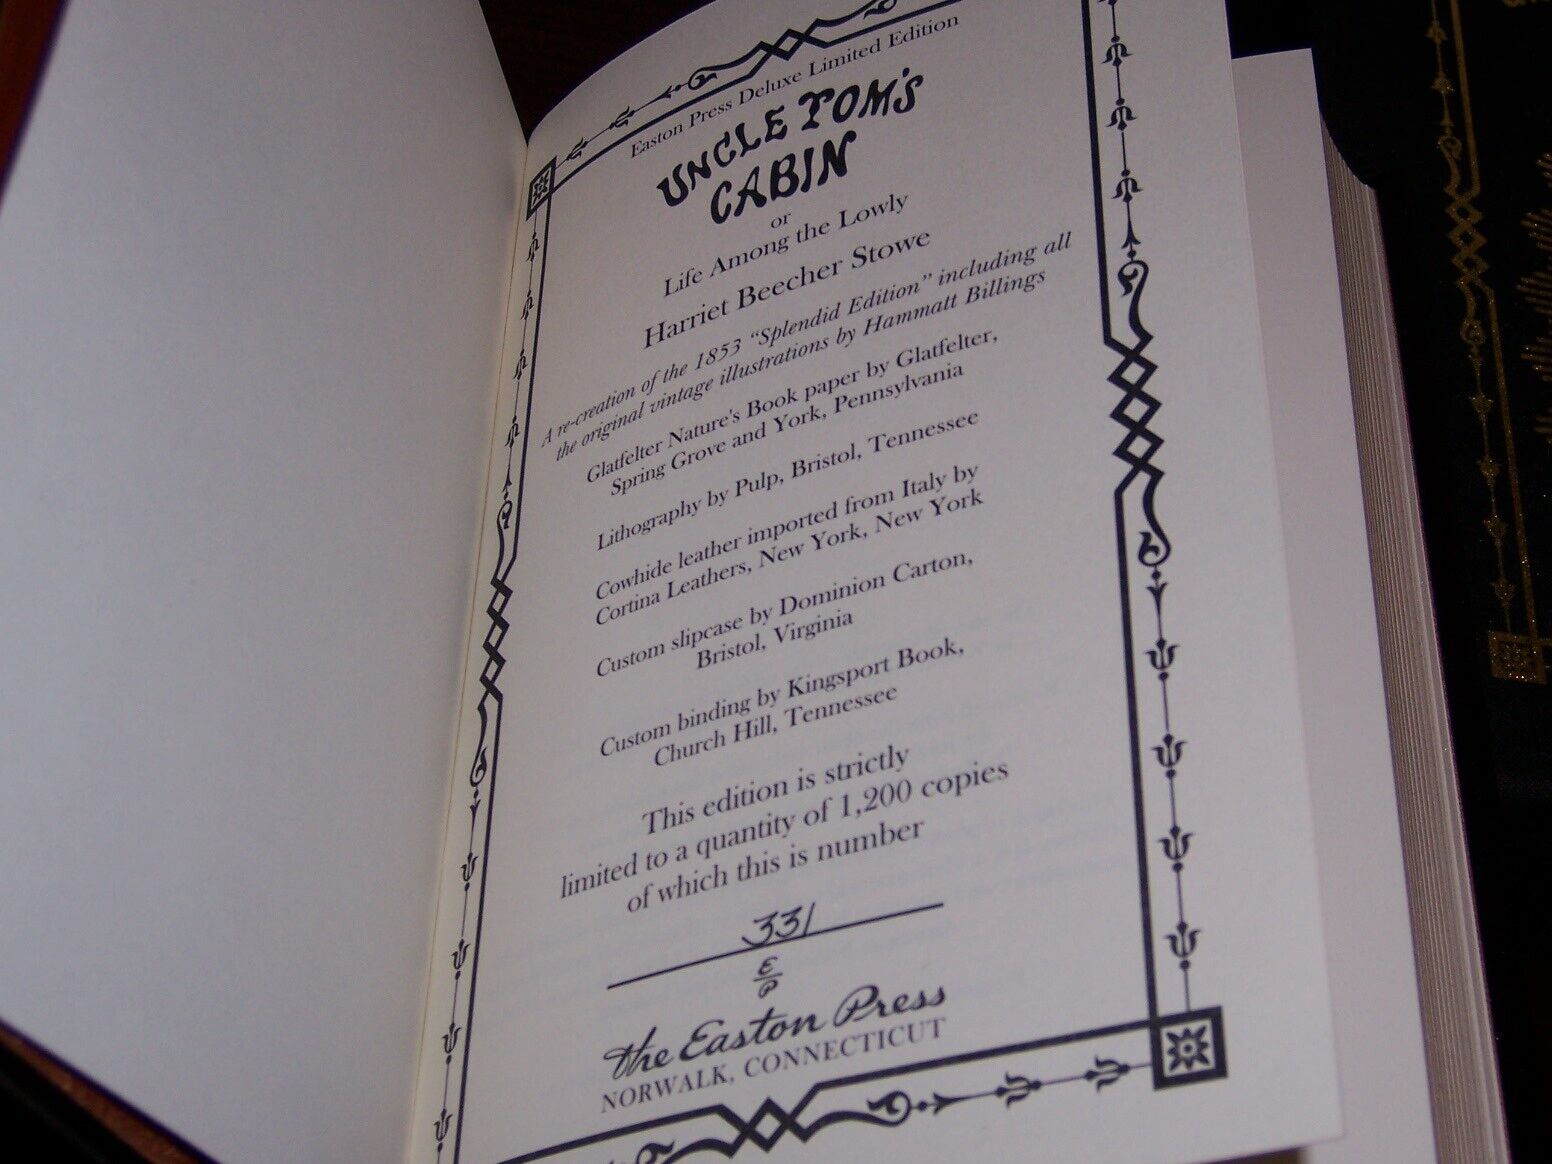 Easton Press Deluxe Limited Edition
UNCLE TOM'S
CABIN
or
Life Among the Lowly
Harriet Beecher Stowe
A re-creation of the 1853 "Splendid Edition" including all
the original vintage illustrations by Hammatt Billings
Glatfelter Nature's Book paper by Glatfelter,
Spring Grove and York, Pennsylvania
Lithography by Pulp, Bristol, Tennessee
Cowhide leather imported from Italy by
Cortina Leathers, New York, New York
Custom slipcase by Dominion Carton,
Bristol, Virginia
Custom binding by Kingsport Book,
Church Hill, Tennessee
This edition is strictly
limited to a quantity of 1,200 copies
of which this is number
331
E
P
the Easton Press
NORWALK, CONNECTICUT